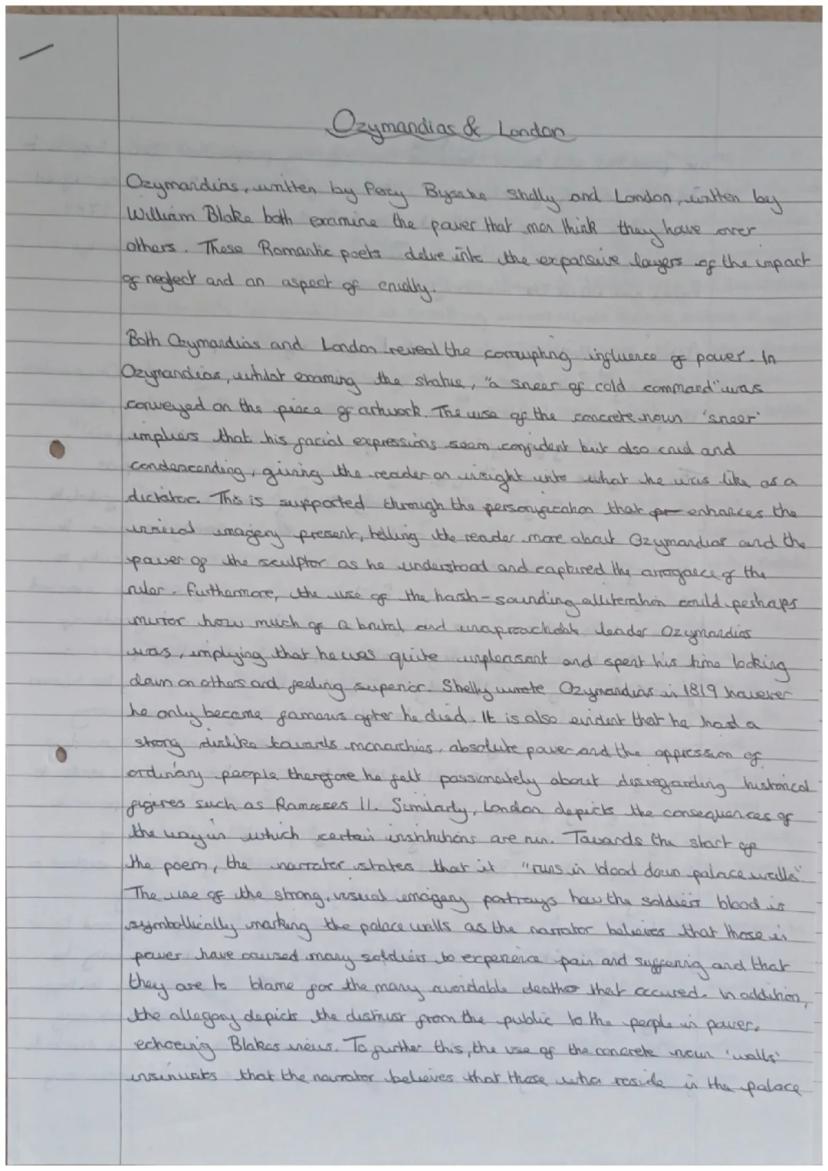 Ozymandias & London
Ozymandias, written by Percy Byshe Shelly and London, written by
William Blake both examine the power that men think they have over
others. These Romantic poets delve into the expansive layers of the impact
of neglect and an aspect of cruelty.
Both Ozymandias and London reveal the corrupting influence of power. In
Ozymandias, whilst examing the statue, "a sneer of cold command" was
conveyed on the piece of artwork. The use of the concrete noun 'sneer'
impliers that his facial expressions seem confident but also cruel and
condencending, giving the reader an insight into what he was like as a
dictator. This is supported through the personification that enhances the
visual imagery present, telling the reader more about Ozymandias and the
power of the sculptor as he understood and captured the arrogance of the
ruler. Furthermore, the use of the harsh-sounding alliteration could perhaps
mirror how much of a brutal and unaproachable leader Ozymandias
was, implying that he was quite unpleasant and spent his time looking
down on others and feeling superior. Shelly wrote Ozymandias in 1819 however
he only became famous after he died. It is also evident that he had a
strong dislike towards monarchies, absolute power and the oppression of
ordinary people therefore he felt passionately about disregarding historical
figures such as Ramesses II. Similarly, London depicts the consequences of
the way in which certain institutions are run. Towards the start of
the poem, the narrator states that it "runs in blood down palace walls"
The use of the strong, visual imagery portrays how the soldiers blood is
symbollically marking the palace walls as the narrator believes that those in
power have caused many soldiers to experience pain and suffering and that
they are to blame for the many avoidable deaths that occured. In addition,
the allegory depicts the distrust from the public to the people in power,
echoeing Blakes views. To further this, the use of the concrete noun 'walls'
insinuates that the narrator believes that those who reside in the palace